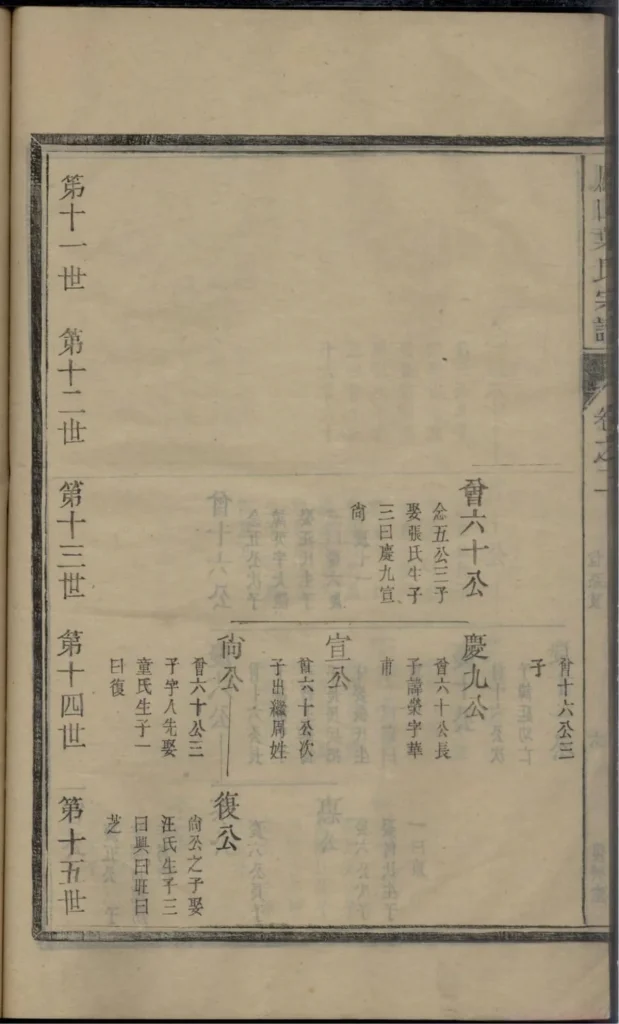 氏宗譜
卷之
曾六十公
念五公三子
娶張氏生子
三曰慶九宣
尚
曾十六公三
子
慶九公
曾六十公長
子諱榮字華
甫
宣公
曾六十公次
子出繼周姓
尚公
曾六十公三
子字人先娶
童氏生子一
曰復
復公
尚公之子娶
汪氏生子三
曰興曰旺曰
芝
第十一世
第十二世
第十三世
第十四世
第十五世